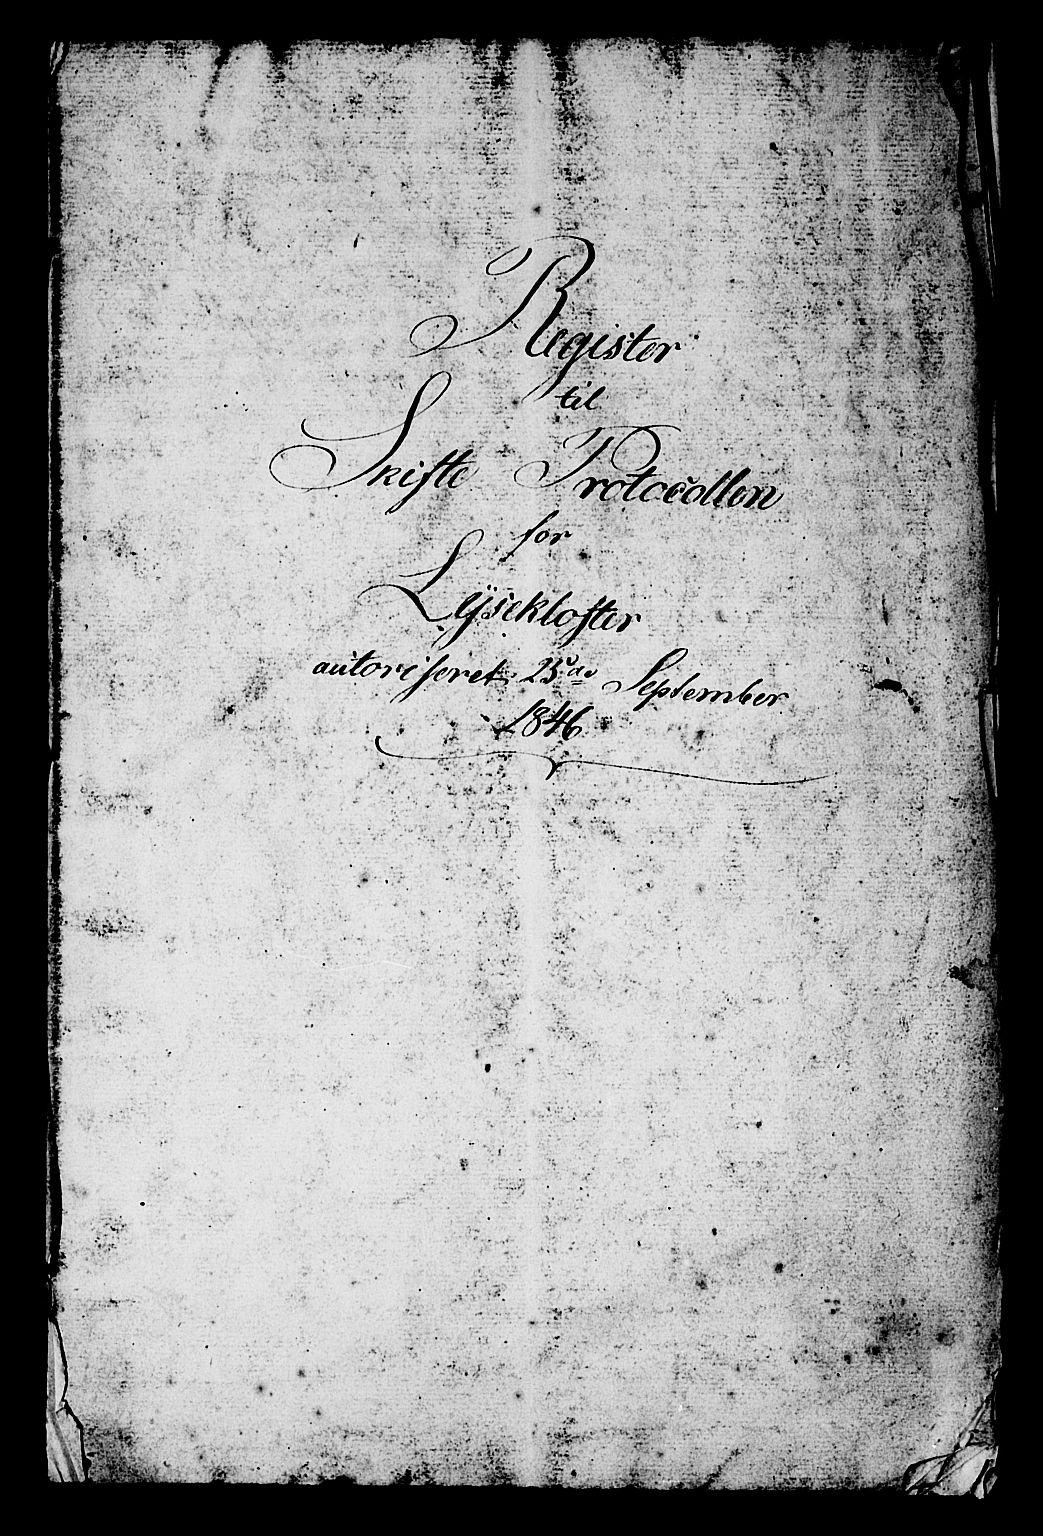 Register
til
Skifte Protocollen
for
Lysekloster
autoriseret 23de September
1846